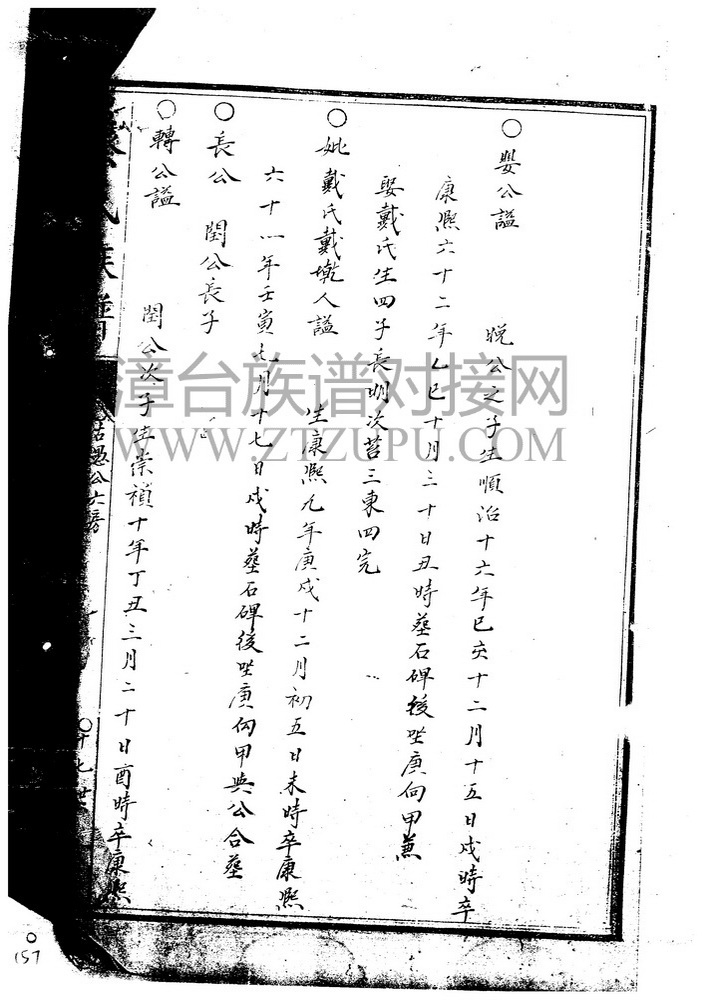 ○嬰公諡
晚公之子生順治十六年己亥十二月十五日戌時卒
康熙六十二年乙巳十月三十日丑時葬石碑後坐庚向甲兼
娶戴氏生四子長明次苔三東四完
○妣戴氏戴墘人諡
生康熙九年庚戌十二月初五日未時卒康熙
六十一年壬寅七月十七日戌時葬石碑後坐庚向甲與公合葬
○長公 閏公長子
○轉公諡
閏公次子生崇禎十年丁丑三月二十日酉時卒康熙
氏族譜
姑愚公六房
○十七世
漳台族谱对接网
WWW.ZTZUPU.COM
157